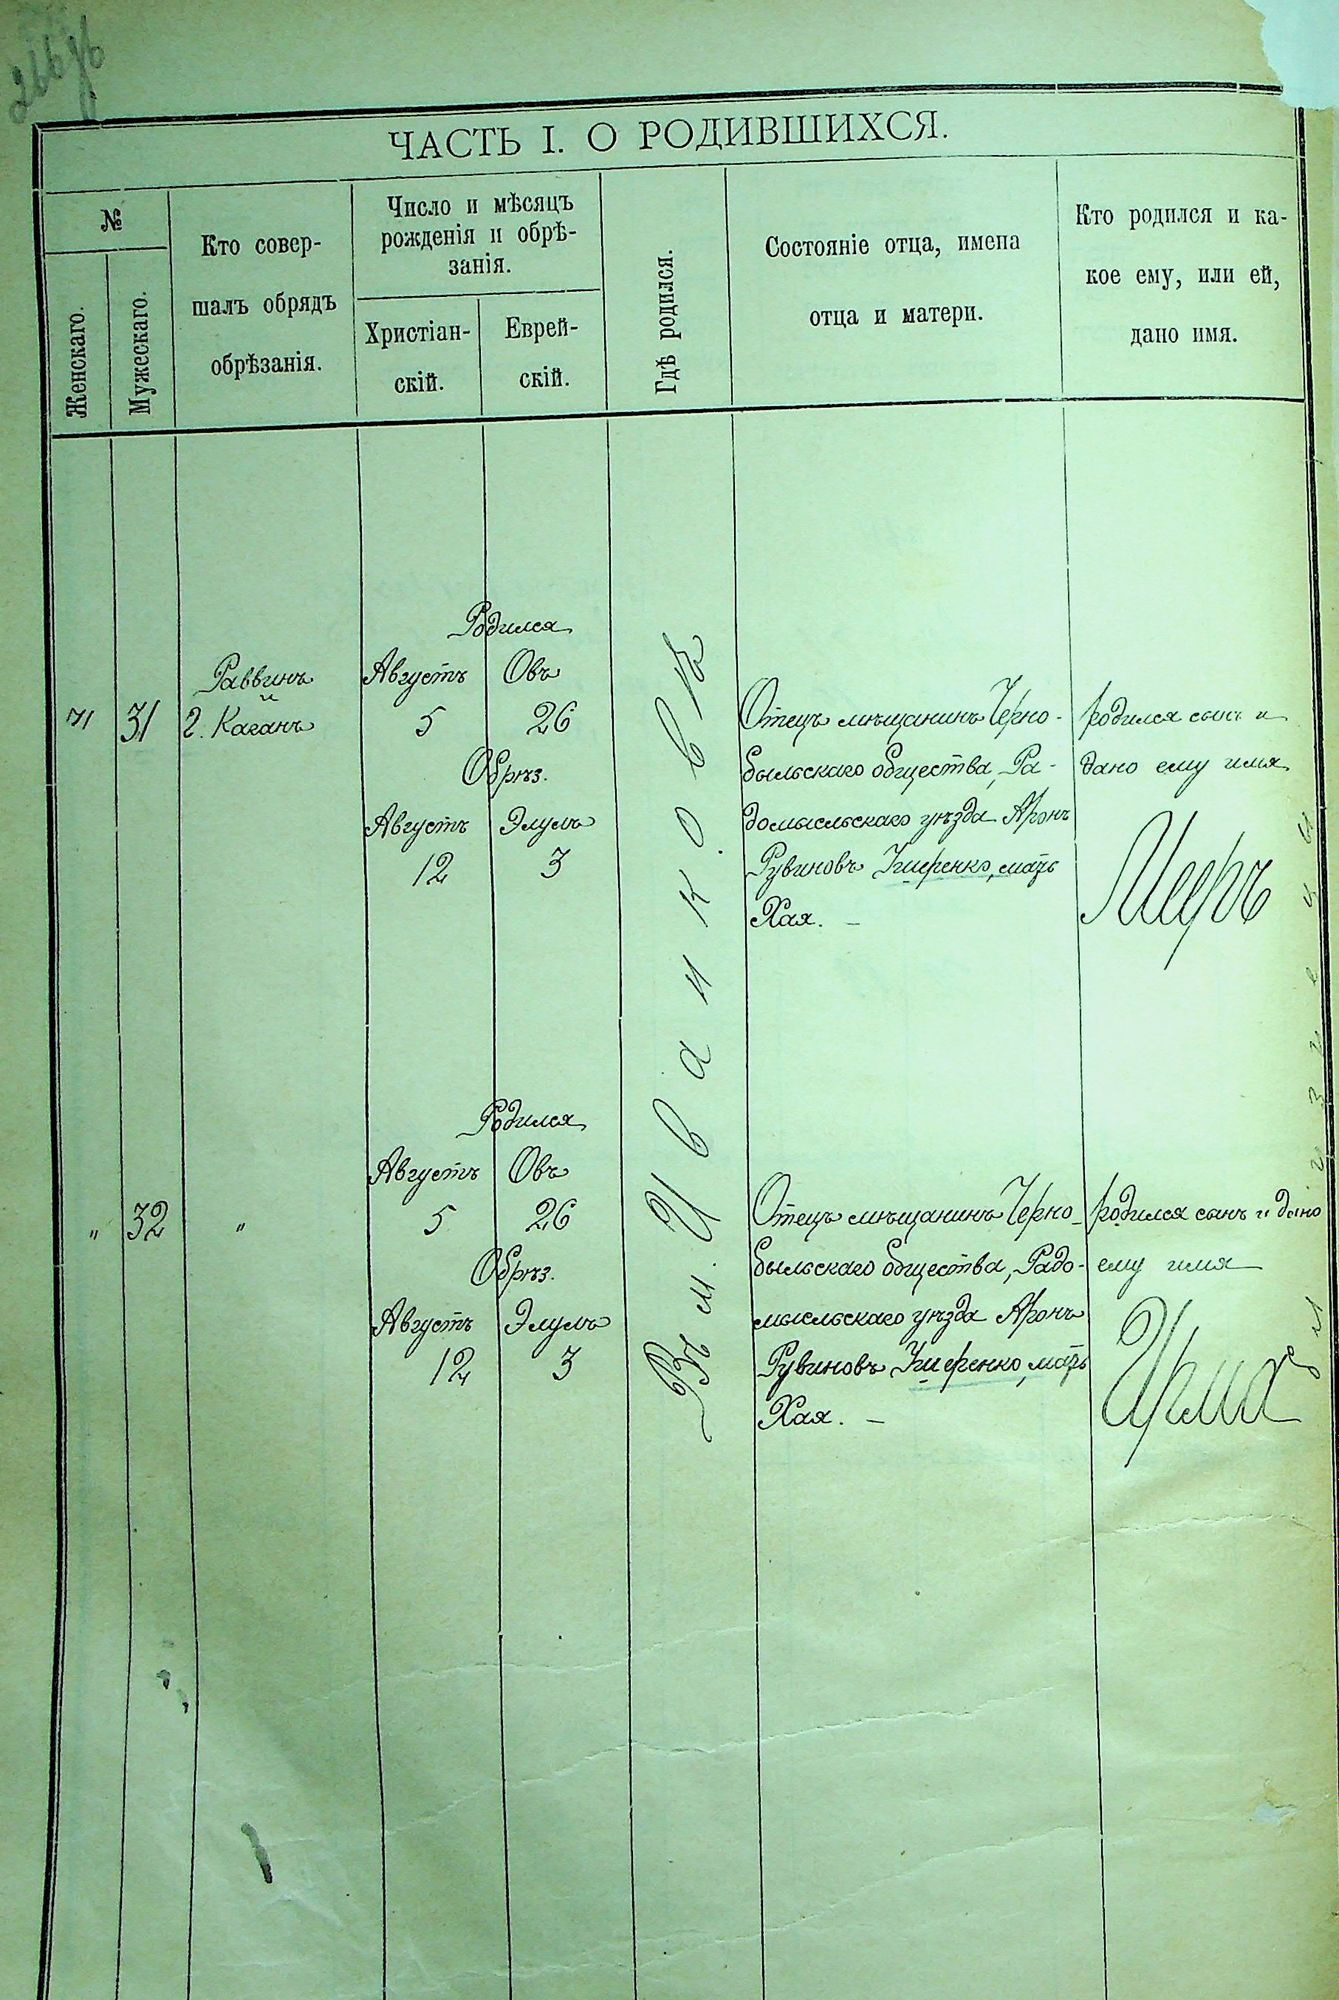 ЧАСТЬ I. О РОДИВШИХСЯ.
№
Женскаго.
Мужескаго.
Кто совер-
шалъ обрядъ
обрѣзанія.
Число и мѣсяцъ
рожденія и обрѣ-
занія.
Христіан-
скій.
Еврей-
скій.
Гдѣ родился.
Состояніе отца, имена
отца и матери.
Кто родился и ка-
кое ему, или ей,
дано имя.
31
Раввинъ
и
г. Каганъ
Родился
Августъ Овъ
5 26
Обрѣз.
Августъ Элулъ
12 3
Въ м. Иванковѣ
Отецъ мѣщанинъ Черно-
быльскаго общества, Ра-
домысльскаго уѣзда Аронъ
Рувиновъ Ушеренко, мать
Хая. —
родился сынъ и
дано ему имя
Меиръ
„ 32 „
Родился
Августъ Овъ
5 26
Обрѣз.
Августъ Элулъ
12 3
Отецъ мѣщанинъ Черно-
быльскаго общества, Радо-
мысльскаго уѣзда Аронъ
Рувиновъ Ушеренко, мать
Хая. —
родился сынъ и дано
ему имя
Ирма
близнецы